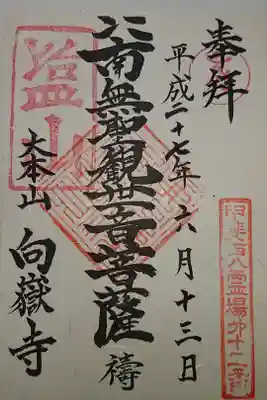 奉拝
平成二十七年六月十三日
南無聖観世音菩薩
大本山 向嶽寺
甲斐百八霊場第十二番